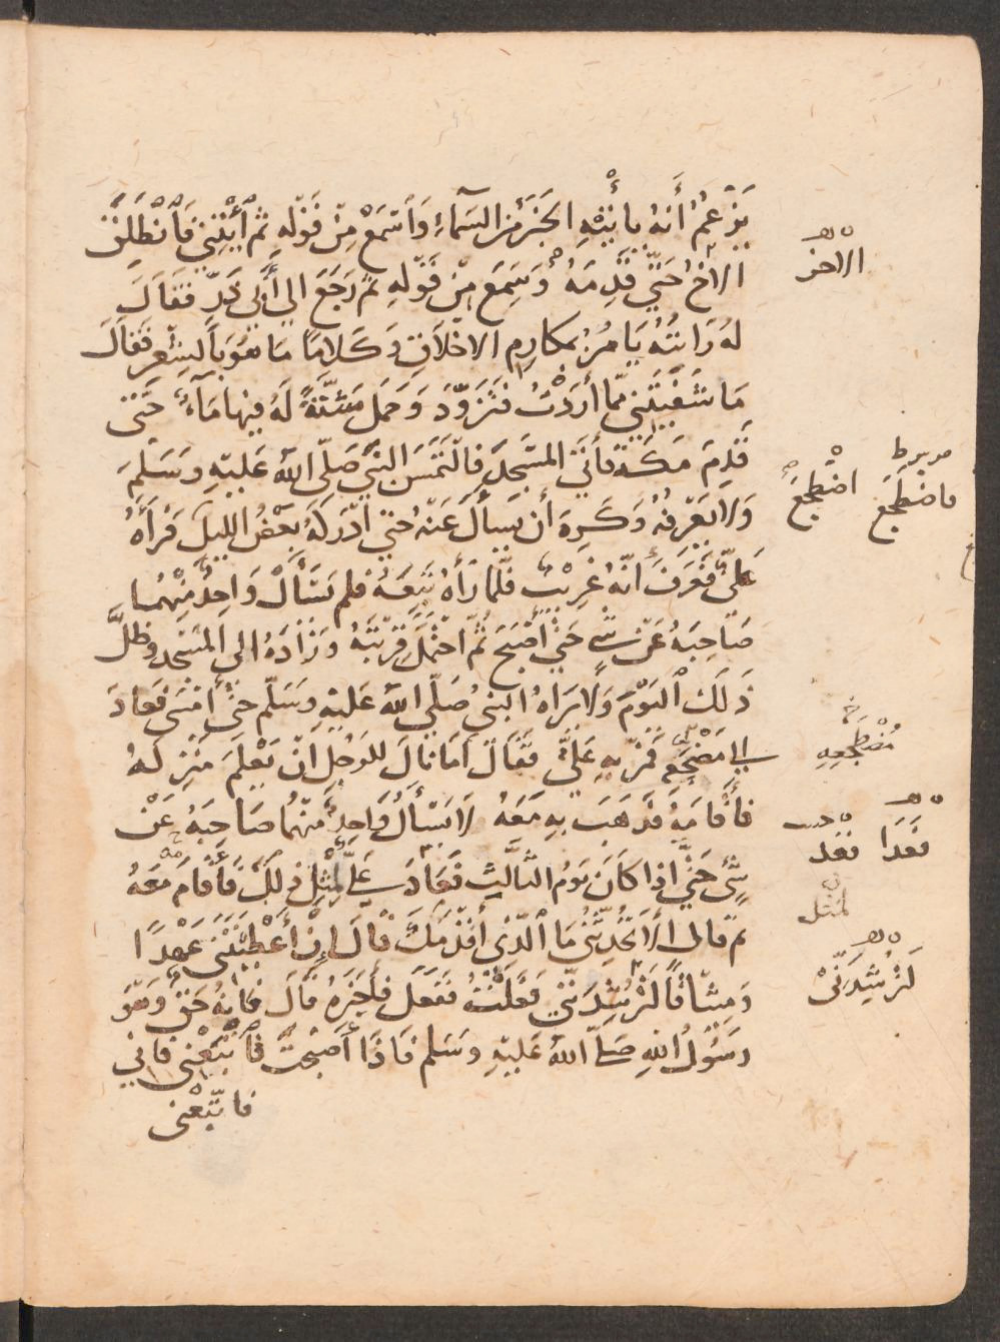 يَزْعُمُ أَنهُ يَأْتِيْهِ الخَبَرُ مِنَ السَّمَآءِ وَاَسْمَعْ مِنْ قَوْلِهِ ثُمَّ اْئْتِنِي فَاْنْطَلَقَ
الاَخُ حَتّي قَدِمَهُ وَسَمِعَ مِنْ قَوْلِهِ ثُمَّ رَجَعَ الي أَبِي ذَرٍّ فَقَالَ
لهُ رَايْتُهُ يَامُرُ بمكارِمِ الاخْلاَقِ وَكَلَامًا مَا هُوَ بِالشِعْرِ فَقَالَ
مَا شَفَيْتَنِي مِمّا أَرَدْتُ فَتَزَوَّدَ وَحَمَلَ شَنَّةً لَهُ فيها مَآءٌ حَتّى
قَدِمَ مَكّةَ فأتَى المَسْجِدَ فالْتَمَسَ النَّبيَّ صَلّى اللهُ عَليْهِ وسَلَّمَ
وَلاَ يَعْرِفهُ وَكَرِهَ أن يسأَلَ عَنْهُ حَتى ادْرَكَهُ بَعْضُ الليلِ فَرَأَهُ
عَلىٌّ فَعَرَفَ أنَّهُ غَرِيْبٌ فلمّا رَأهُ تَبِعَهُ فلم يَسْأَلْ وَاحِدٌ مِنْهُمَا
صَاحِبَهُ عَنْ شَىٍ حَتّي أَصْبَحَ ثُمَّ احْتَمَلَ قِرْبَتَهُ وَزَادَهُ الى المَسْجِدِ وظَلَّ
ذَلِكَ اْليَوْمَ وَلاَ يَرَاهُ النبيُ صَلّي اللهُ عَليْهِ وَسَلّم حَتّي أَمْسَى فَعَادَ
الي مَضْجَعِهِ فَمَرَّ بِهِ عَلِيٌّ فَقَالَ امَا نَالَ للرَجُلِ انْ يَعْلَمَ مَنْزِلَهُ
فَأَقَامَهُ فَذَهَبَ بِهِ مَعَهُ لَا يَسْأَلُ وَاحِدٌ مِنْهُمَا صَاحِبَهُ عَنْ
شَىْءٍ حَتّى اذا كَانَ يَوْمُ الثّالِثِ فَعَادَ عَليٌّ لِمِثْلِ ذلِكَ فَأَقَامَ مَعَهُ
ثمّ قال اَلَا تُحَدِّثُنِي مَا اْلَّذِى أَقْدَمَكَ قَالَ اِنْ أَعْطَيْتَنِي عَهْدًا
وَمِيثَاقًا لَتُرْشِدَنَّنِي فَعَلْتُ فَفَعَلَ فأَخْبَرَهُ قَالَ فَانهُ حَقٌّ وَهُوَ
رسَوُلُ اللهِ صَلَّى اللهُ عَليْهِ وَسَلم فَاذَا أَصْبَحْتَ فَاتْبَعْنِي فاني
فاتَّبَعْنى
الاخر
فاضْطَجَعَ
اضْطَجَعَ
مُضْطَجَعِهِ
فَغَدَا
فغَد
لمثل
لَتُرْشِدَنِّىْ